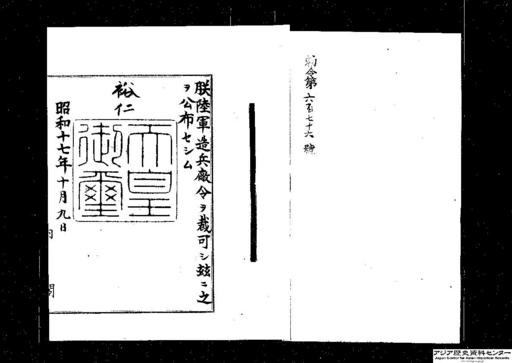 勅令第六百七十六號
朕陸軍造兵廠令ヲ裁可シ玆ニ之
ヲ公布セシム
裕仁
天皇御璽
昭和十七年十月九日
内閣
アジア歴史資料センター
Japan Center for Asian Historical Records